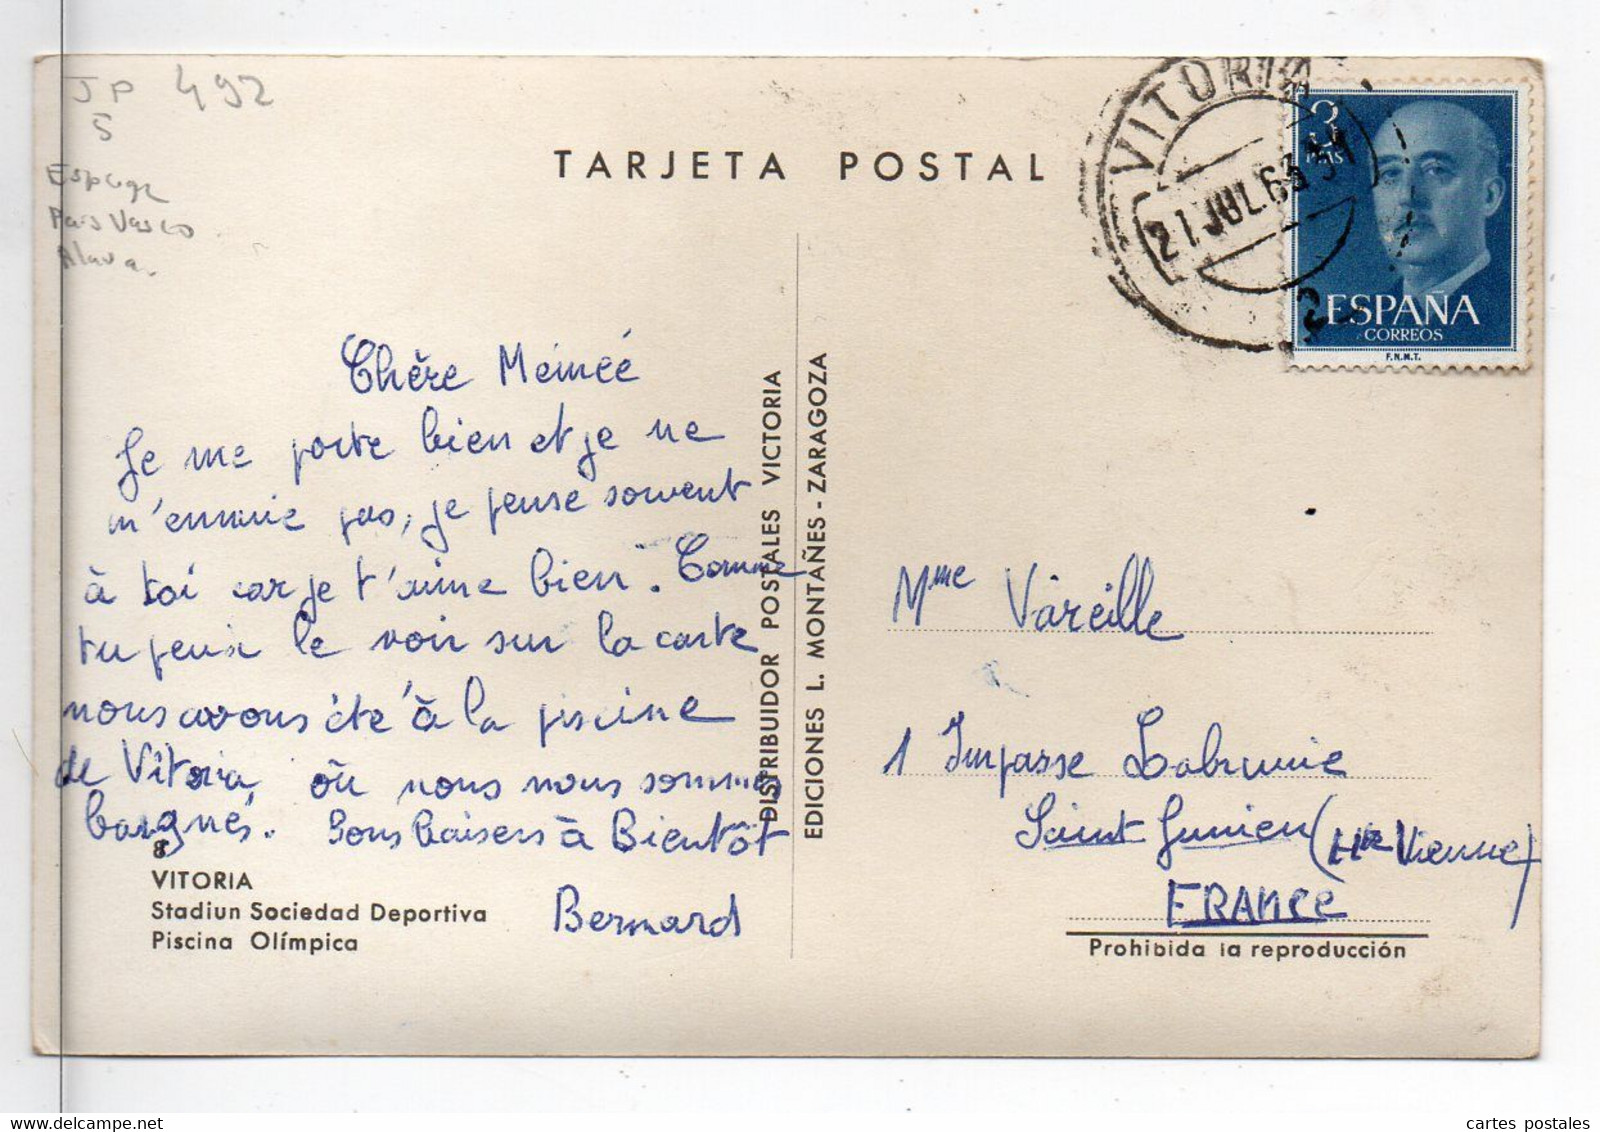 JP 492
5
Espagne
Pais Vasco
Alava
TARJETA POSTAL
VITORIA
21 JUL 63
3
PTAS
ESPAÑA
CORREOS
F.N.M.T.
Chère Mémée
Je me porte bien et je ne
m'ennuie pas, je pense souvent
à toi car je t'aime bien. Comme
tu peux le voir sur la carte
nous avons été à la piscine
de Vitoria où nous nous sommes
baignés. Bons baisers à Bientôt
Bernard
8
VITORIA
Stadiun Sociedad Deportiva
Piscina Olímpica
DISTRIBUIDOR POSTALES VICTORIA
EDICIONES L. MONTAÑES - ZARAGOZA
Mme Vareille
1 Impasse Labrunie
Saint Junien (Hte Vienne)
FRANCE
Prohibida la reproducción
delcampe.net
cartes postales